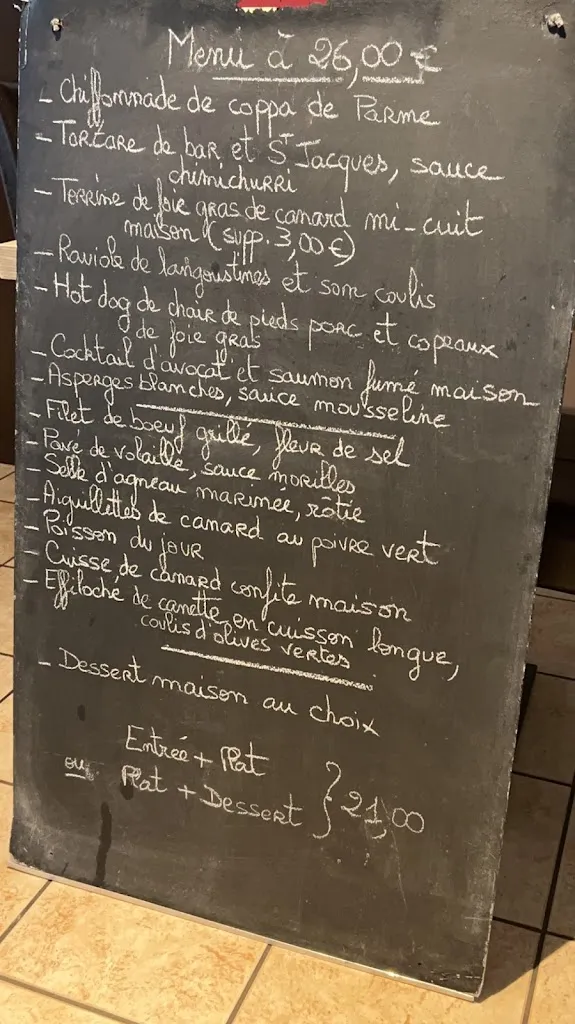 Menu à 26,00 €
- Chiffonnade de coppa de Parme
- Tartare de bar et St Jacques, sauce
chimichurri
- Terrine de foie gras de canard mi-cuit
maison (supp. 3,00 €)
- Raviole de langoustines et son coulis
- Hot dog de chair de pieds porc et copeaux
de foie gras
- Cocktail d'avocat et saumon fumé maison
- Asperges blanches, sauce mousseline
- Filet de boeuf grillé, fleur de sel
- Pavé de volaille, sauce morilles
- Selle d'agneau marinée, rôtie
- Aiguillettes de canard au poivre vert
- Poisson du jour
- Cuisse de canard confite maison
- Effiloché de canette en cuisson longue,
coulis d'olives vertes
- Dessert maison au choix
Entrée + Plat
ou
Plat + Dessert } 21,00